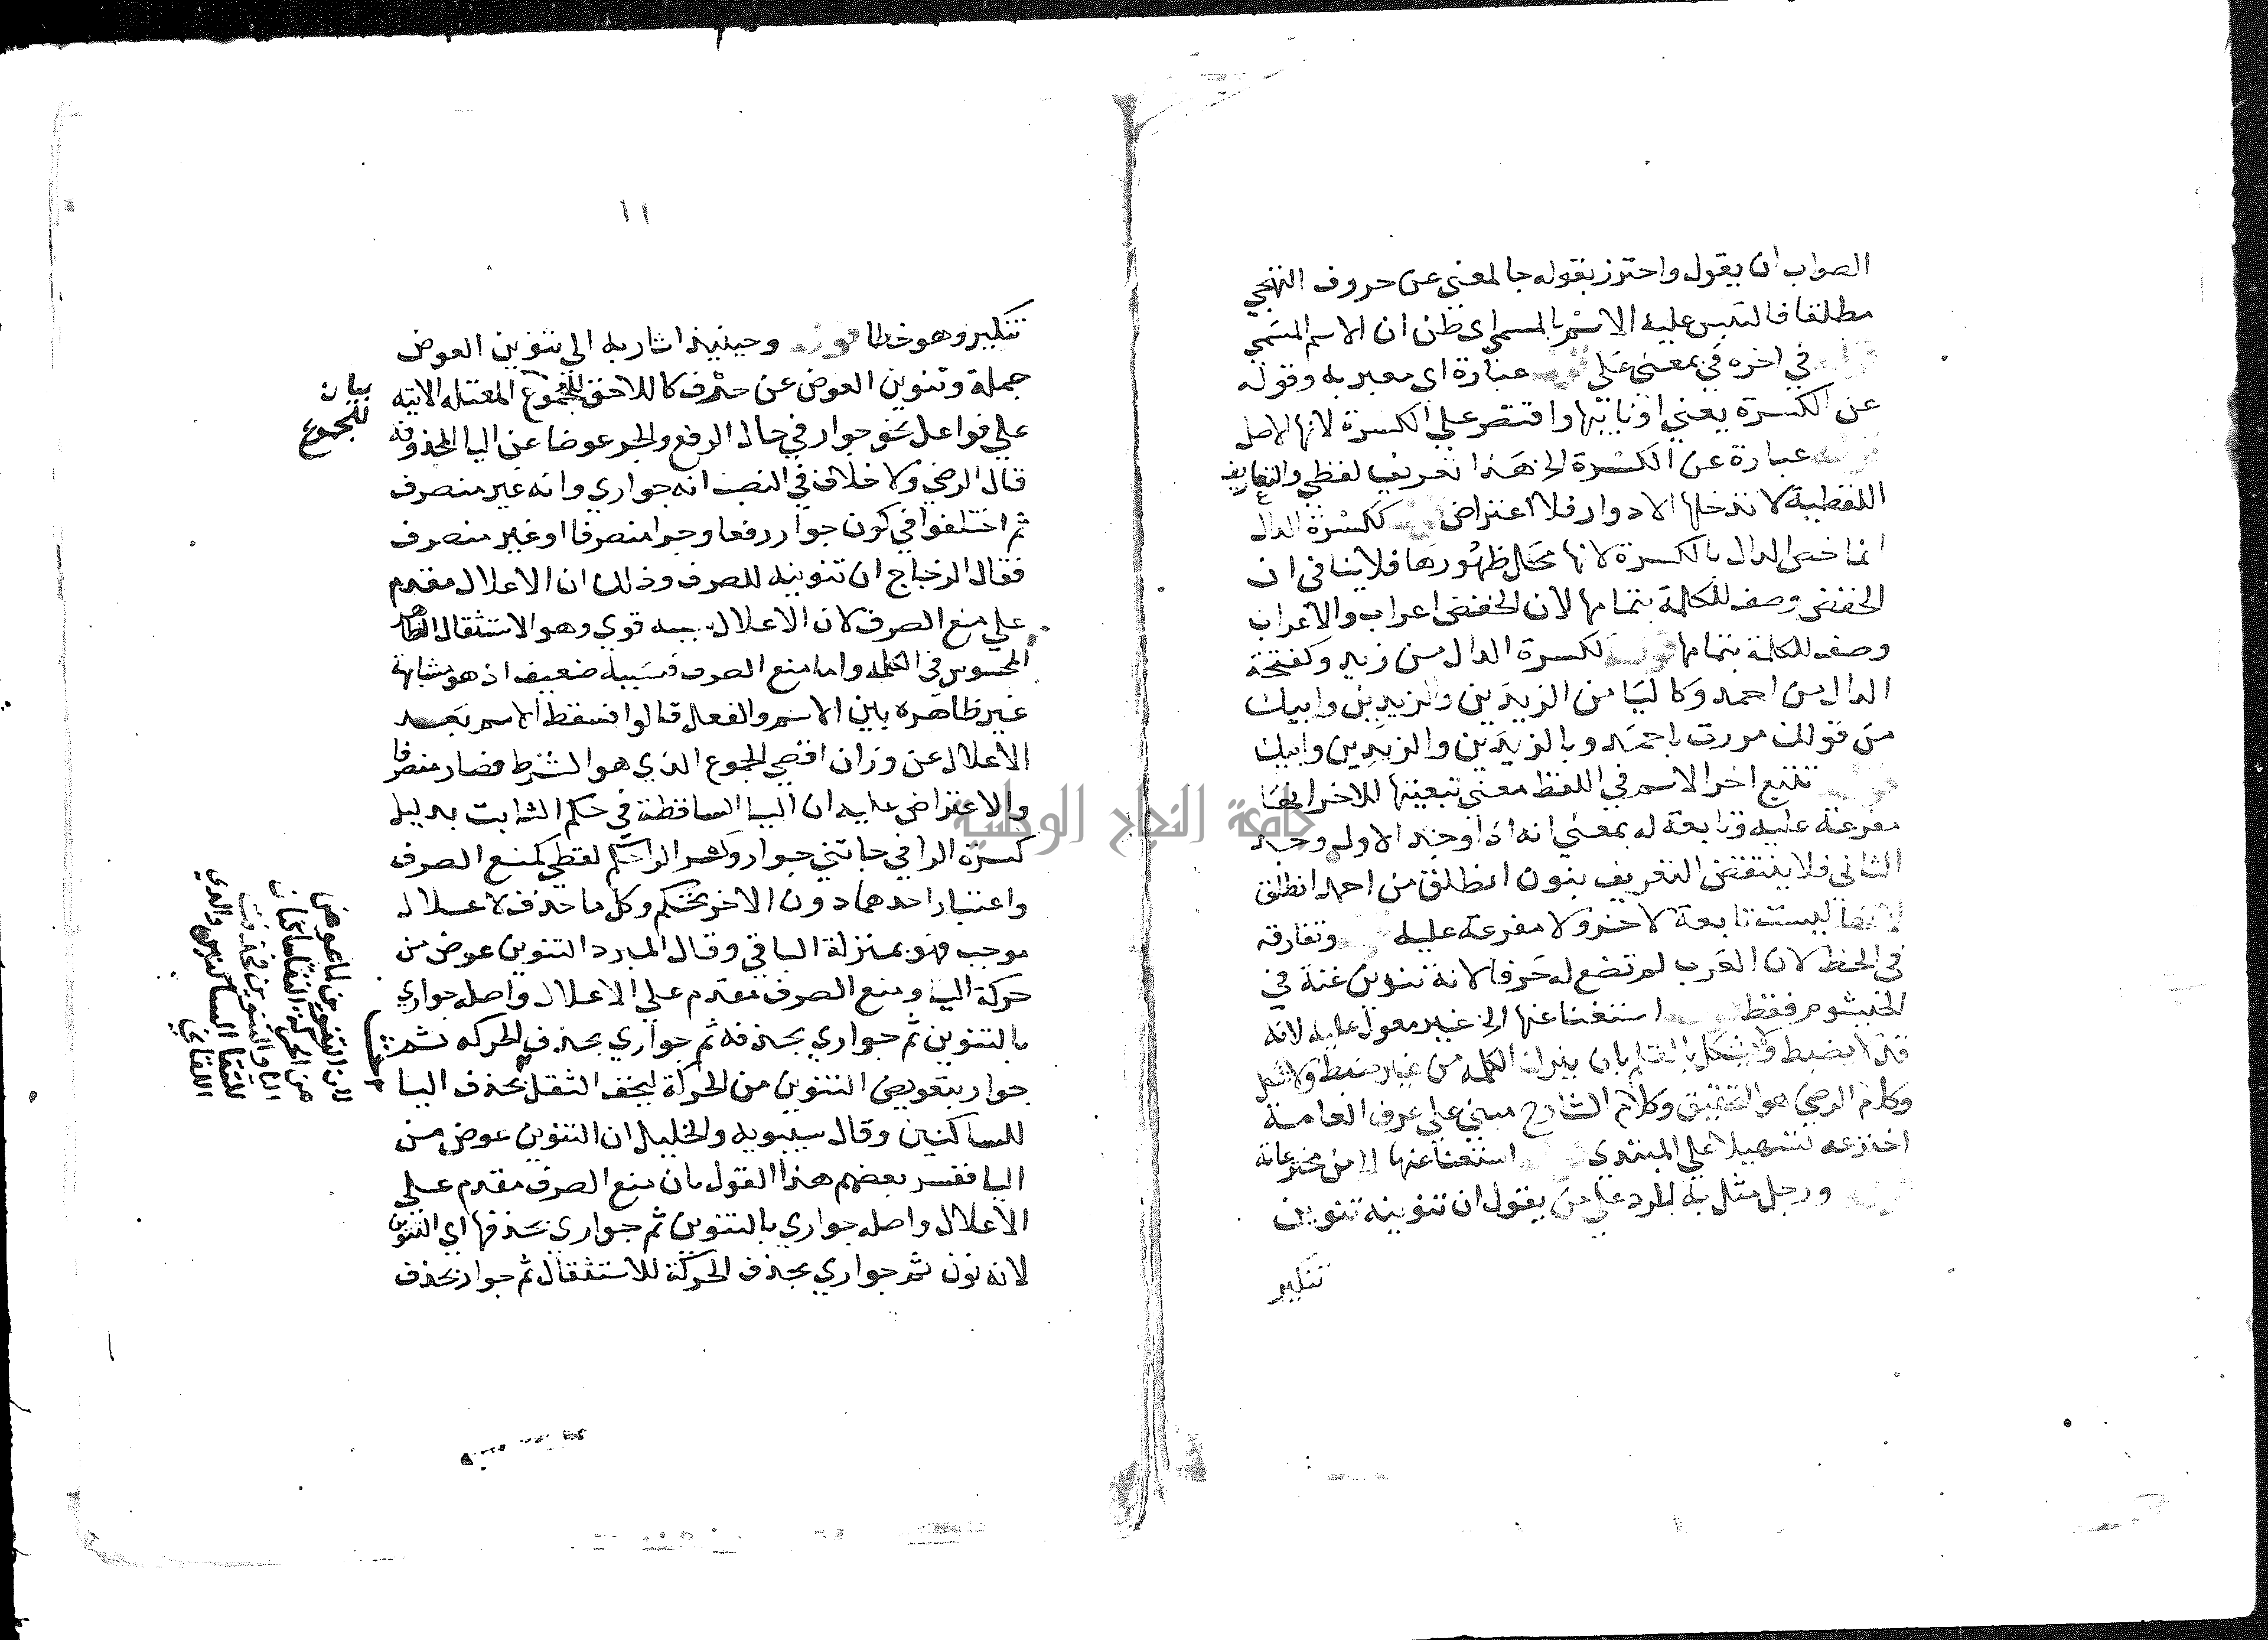 الصواب ان يقول واحترز بقوله جا لمعني عن حروف التهجي
مطلقا فالتبس عليه الاسم بالمسمي اي ظن ان الاسم المسمي
في اخره في بمعني علي عبارة اي معبر به وقوله
عن الكسرة يعني او نايبها واقتصر علي الكسرة لانها الاصل
عبارة عن الكسرة الخ هذا تعريف لفظي والتعاريف
اللفظية لا تدخلها الادوار فلا اعتراض ككسرة الدال
انما خص الدال بالكسرة لانها محال ظهورها فلا ينافي ان
الخفض وصف للكلمة بتمامها لان الخفض اعراب والاعراب
وصف للكلمة بتمامها لكسرة الدال من زيد وكفتحة
الدال من احمد وكاليا من الزيدين والزيدين وابيك
من قولك مررت باحمد وبالزيدين والزيدين وابيك
تتبع اخر الاسم في اللفظ معني تبعيتها للاخر انها
مفرعة عليه وتابعة له بمعني انه اذا وجد الاول وجد
الثاني فلا ينتقض التعريف بنون انطلق من احمد انطلق
ليست تابعة لاخر ولا مفرعة عليه وتفارقه
في الخط لان العرب لم تضع له حرفا لانه تنوين غنة في
الخيشوم فقط استغنا عنها الخ غير معول عليه لانه
قد لا يضبط بان ينزل الكلمه من غير ضبط ولا شكل
وكلام الرضي هو التحقيق وكلام الشارح مبني علي عرف العامة
اخترعه تسهيلا علي المبتدي استغنا عنها
ورجل مثل به للرد علي من يقول ان تنوينه تنوين
تنكير
١١
تنكير وهو خطا وحينيذ اشار به الي تنوين العوض
جملة وتنوين العوض عن حرف كاللاحق للجموع المعتله الاتيه
علي فواعل نحو جوار في حال الرفع والجر عوضا عن اليا المحذوفة
قال الرضي ولا خلاف في النصب انه جواري وانه غير منصرف
ثم اختلفوا في كون جوار رفعا وجرا منصرفا او غير منصرف
فقال الزجاج ان تنوينه للصرف وذلك ان الاعلال مقدم
علي منع الصرف لان الاعلال سببه قوي وهو الاستثقال الظاهر
المحسوس في الكلمه واما منع الصرف فسببه ضعيف اذ هو مشابهة
غير ظاهره بين الاسم والفعل قالوا فسقط الاسم بعد
الاعلال عن وزان اقصي الجموع الذي هو الشرط فصار منصرفا
والاعتراض عليه ان اليا الساقطة في حكم الثابت بدليل
كسرة الرا في جاتني جوار وكسر الرا حكم لفظي كمنع الصرف
واعتبار احدهما دون الاخر تحكم وكل ما حذف لاعلال
موجب فهو بمنزلة الباقي وقال المبرد التنوين عوض من
حركة اليا ومنع الصرف مقدم علي الاعلال واصله جواري
بالتنوين ثم جواري بحذفه ثم جواري بحذف الحركه ثم
جوار بتعويض التنوين من الحركة ليخف الثقل بحذف اليا
للساكنين وقال سيبويه والخليل ان التنوين عوض من
اليا ففسر بعضهم هذا القول بان منع الصرف مقدم علي
الاعلال واصله جواري بالتنوين ثم جواري بحذفها اي التنوين
لانه نون ثم جواري بحذف الحركة للاستثقال ثم جوار بحذف
بيان
للجموع
لان التنوين لما عوض
عن الحركة التقا ساكنان
اليا والتنوين فحذفت
جامعة النجاح الوطنية